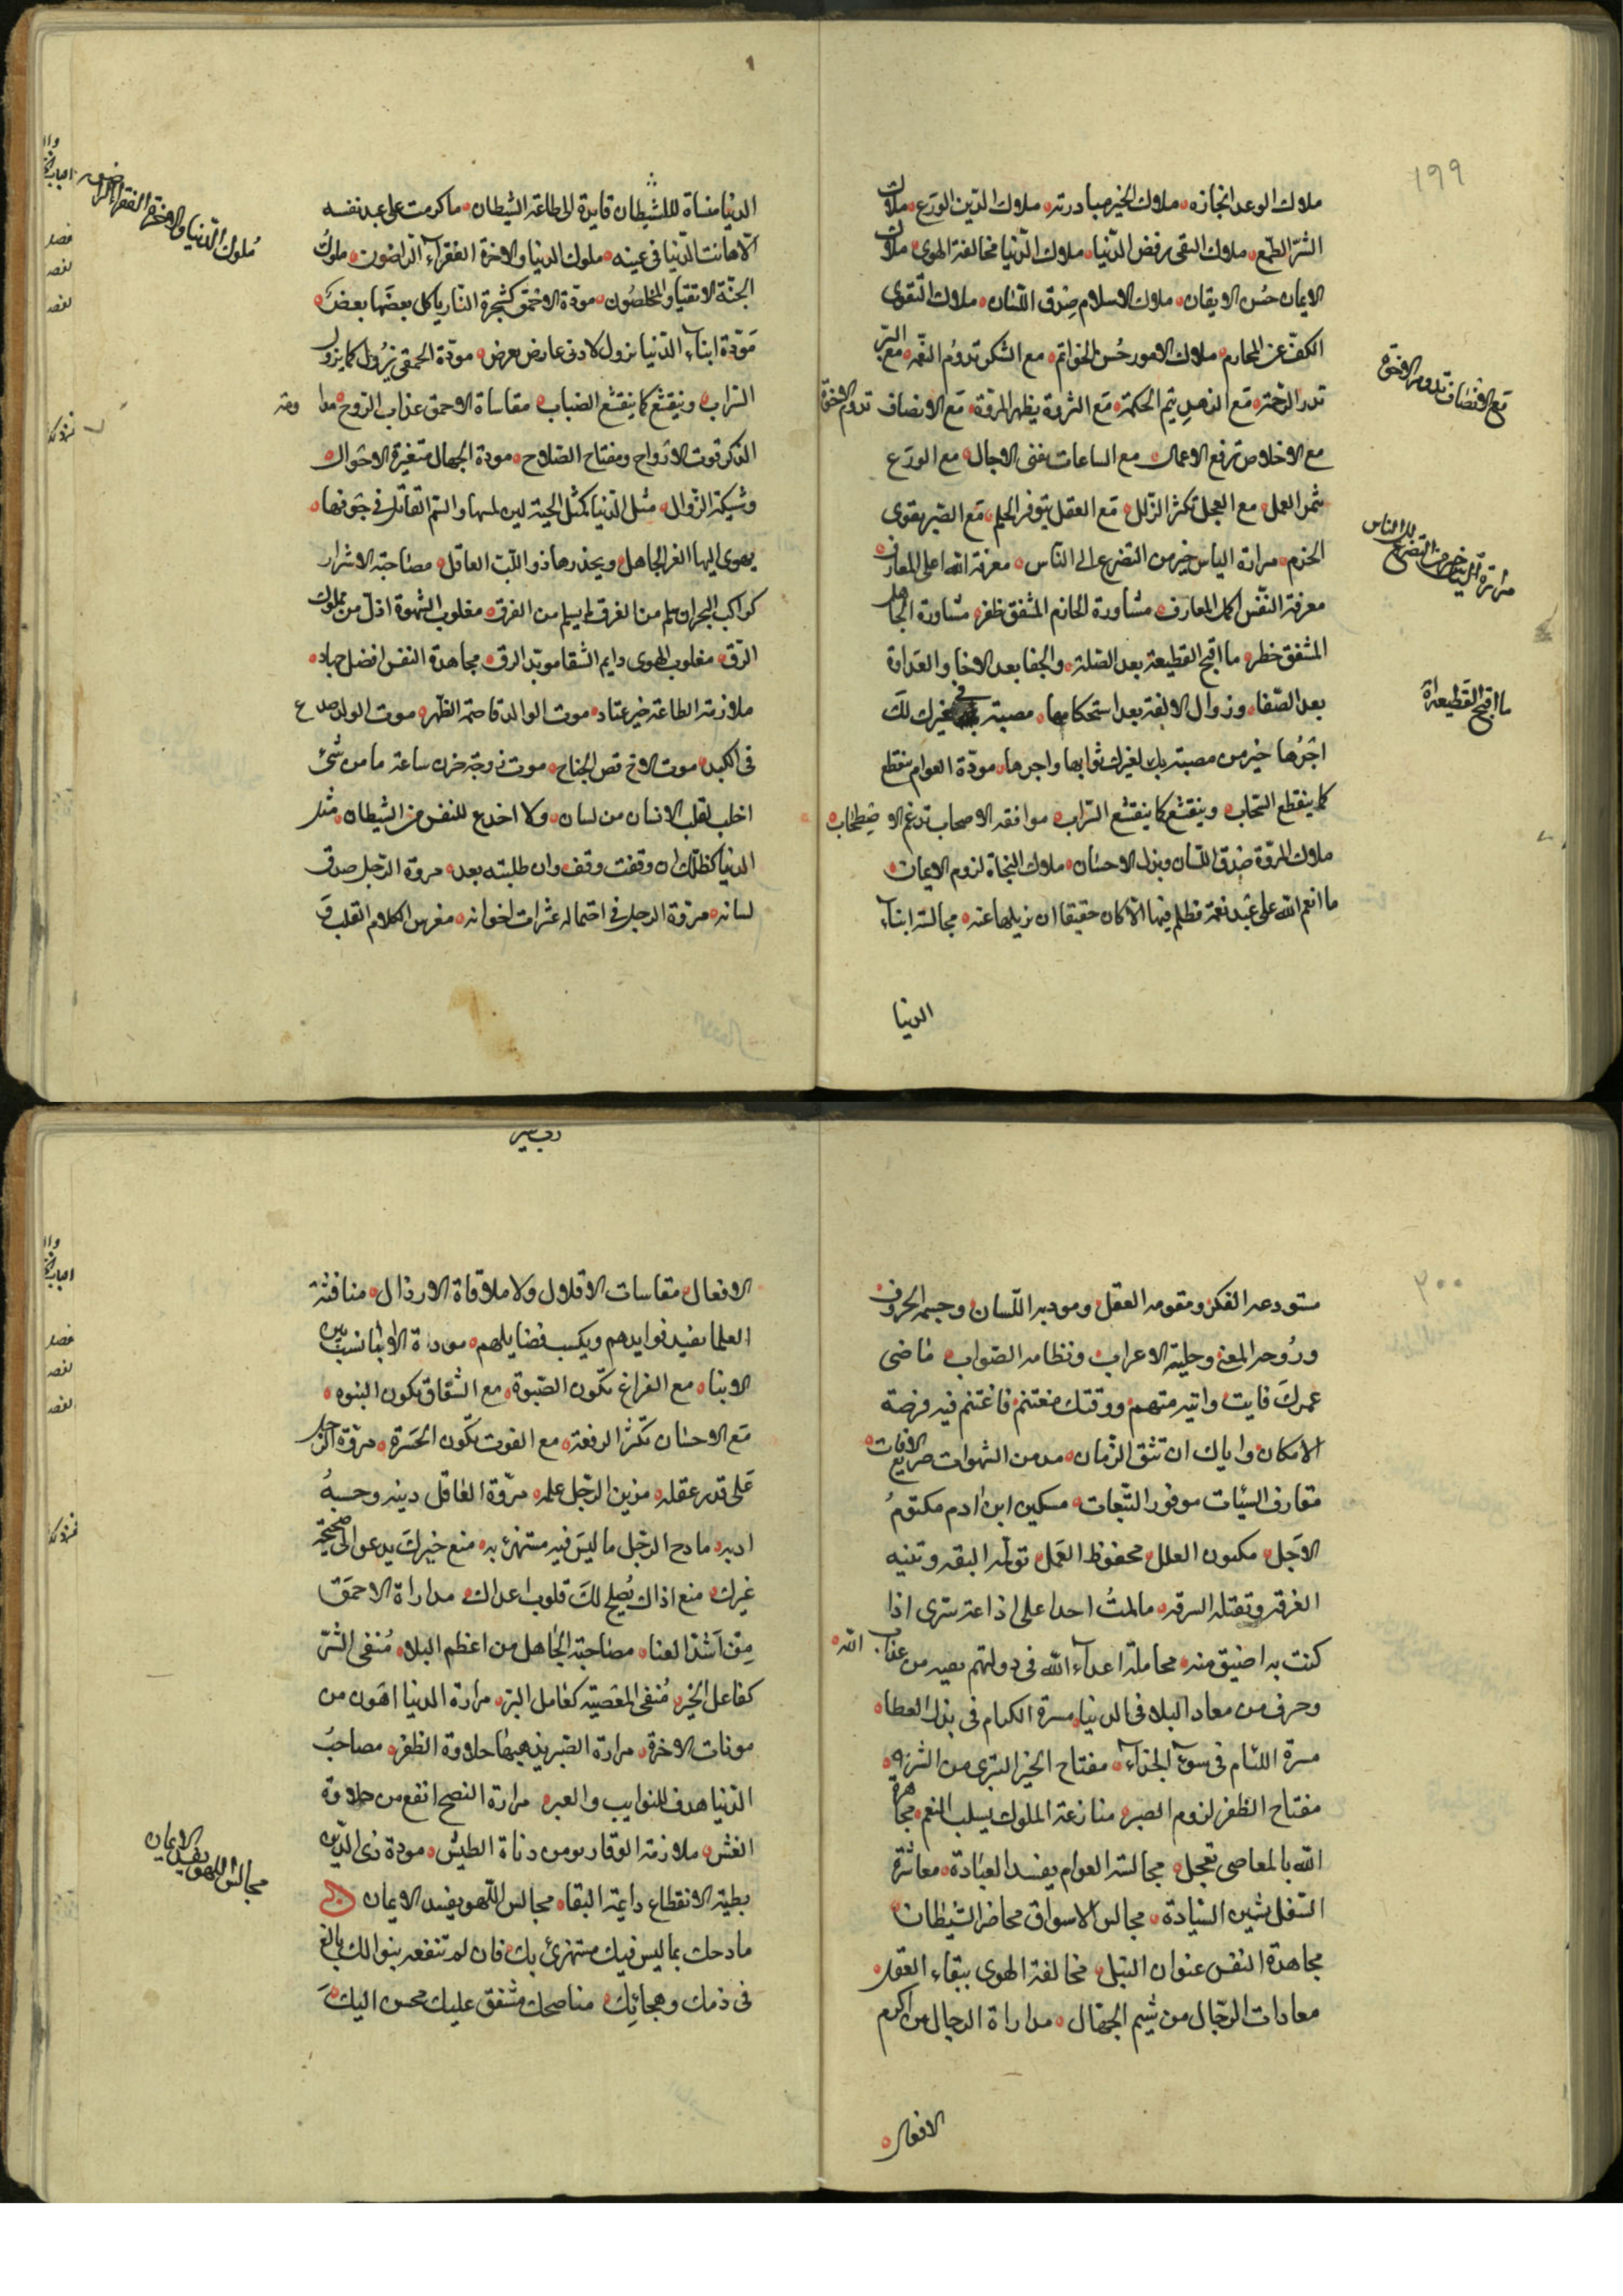 ١٩٩
ملاك الوعد انجازه ملاك الخير مبادرته ملاك الدين الورع ملاك
الشر الطمع ملاك التقى رفض الدنيا ملاك الدنيا مخالفة الهوى ملاك
الايمان حسن الايقان ملاك الاسلام صدق اللسان ملاك التقوى
الكف عن المحارم ملاك الامور حسن الخواتم مع الشكر تدوم النعمه مع البر
تدر الرحمة مع الزهد يتم الحكمة مع الثروة يظهر المروة مع الانصاف تدوم الاخوة
مع الاخلاص ترفع الاعمال مع الساعات تفنى الاجال مع الورع
يثمر العمل مع العجل تكثر الزلل مع العقل يتوفر الحلم مع الصبر يقوى
الحزم مرارة الياس خير من التضرع الى الناس معرفة الله اعلى المعارف
معرفة النفس اكمل المعارف مشاورة الحازم المشفق ظفر مشاورة الجاهل
المشفق خطر ما اقبح القطيعة بعد الصلة والجفا بعد الاخا والعداوة
بعد الصفا وزوال الالفة بعد استحكامها مصيبة في غيرك لك
اجرها خير من مصيبة بك لغيرك ثوابها واجرها مودة العوام ينقطع
كما ينقطع السحاب وينقشع كما ينقشع التراب موافقة الاصحاب تدعم الاصطحاب
ملاك المروة صدق اللسان وبذل الاحسان ملاك النجاة لزوم الايمان
ما انعم الله على عبد نعمة فظلم فيها الا كان حقيقا ان يزيلها عنه مجالسة ابناء
الدنيا
مع الانصاف تدوم الاخوة
مرارة الياس خير من التضرع الى الناس
ما اقبح القطيعة
الدنيا منساة للشيطان قايدة الى طاعة الشيطان ما كرمت على عبد نفسه
الا هانت الدنيا في عينه ملوك الدنيا والاخرة الفقراء الراضون ملوك
الجنة الاتقيا والمخلصون مودة الاحمق كشجرة النار ياكل بعضها بعض
مودة ابناء الدنيا يزول لادنى عارض يعرض مودة الحمقى يزول كما يزول
التراب وينقشع كما ينقشع الضباب مقاساة الاحمق عذاب الروح مداومة
الذكر قوت الارواح ومفتاح الصلاح مودة الجهال متغيرة الاحوال
وشيكة الزوال مثل الدنيا كمثل الحية لين لمسها والسم القاتل في جوفها
يهوى اليها الغر الجاهل ويحذرها ذو اللب العاقل مصاحبة الاشرار
كراكب البحر ان سلم من الغرق لم يسلم من الفرق مغلوب الشهوة اذل من مملوك
الرق مغلوب الهوى دايم الشقا موبد الرق مجاهدة النفس افضل جهاد
ملازمة الطاعة خير عتاد موت الوالد قاصمة الظهر موت الولد صدع
في الكبد موت الاخ قص الجناح موت زوجة حزن ساعة ما من شئ
اخلب لقلب الانسان من لسان ولا اخدع للنفس من الشيطان مثل
الدنيا كظلك ان وقفت وقف وان طلبته بعد مروة الرجل صدق
لسانه مروة الرجل في احتماله عثرات اخوانه مغرس الكلام القلب و
ملوك الدنيا والاخرة الفقراء الراضون
٢٠٠
مستودعه الفكر ومقومه العقل ومبديه اللسان وجسمه الحروف
وروحه المعنى وحليته الاعراب ونظامه الصواب ماضى
عمرك فايت واتيه متهم ووقتك مغتنم فاغتنم فيه فرصة
الامكان واياك ان تثق الزمان مدمن الشهوات صريع الافات
مقارف السيئات موفور التبعات مسكين ابن ادم مكتوم
الاجل مكنون العلل محفوظ العمل تولمه البقه وتنتنه
العرقه وتقتله الشرقه ما لمت احدا على اذاعة سرى اذا
كنت به اضيق منه مجاملة اعداء الله في دولتهم تقيه من عذاب الله
وحرف من معاد البلا في الدنيا مسرة الكرام في بذل العطا
مسرة اللئام في سوء الجزاء مفتاح الخير التبرى من الشر
مفتاح الظفر لزوم الصبر منازعة الملوك يسلب النعم مجاهرة
الله بالمعاصى تعجل مجالسة العوام يفسد العبادة معاشرة
السفل يشين السيادة مجالس الاسواق محاضر الشيطان
مجاهدة النفس عنوان النبل مخالفة الهوى ببقاء العقل
معادات الرجال من شيم الجهال مداراة الرجال من اكرم
الافعال
الافعال مقاسات الاقلال ولا ملاقاة الارذال منافثة
العلما يفيد فوايدهم ويكسب فضايلهم مودة الابا نسب بين
الابنا مع الفراغ تكون الصبوة مع الشقاق تكون النبوه
مع الاحسان تكثر الرفعة مع الفوت تكون الحسرة مروة الرجل
على قدر عقله مزين الرجل علمه مروة العاقل دينه وحسبه
ادبه مادح الرجل ما ليس فيه مستهزئ به منع خيرك يدعو الى صحبة
غيرك منع اذاك يصلح لك قلوب اعداك مداراة الاحمق
من اشد العنا مصاحبة الجاهل من اعظم البلا متقى الشر
كفاعل الخير متقى المعصية كفاعل البر مرارة الدنيا اهون من
مونات الاخرة مرارة الصبر يذهبها حلاوة الظفر مصاحب
الدنيا هدف للنوايب والعبر مرارة النصح انفع من حلاوة
الغش ملازمة الوقار يومن دناة الطيش مودة ذى الدين
بطية الانقطاع دايمة البقا مجالس اللهو يفسد الايمان
مادحك بما ليس فيك مستهزئ بك فان لم تنفعه بنوالك بالغ
في ذمك وهجائك مناصحك مشفق عليك محسن اليك
مجالس اللهو يفسد الايمان